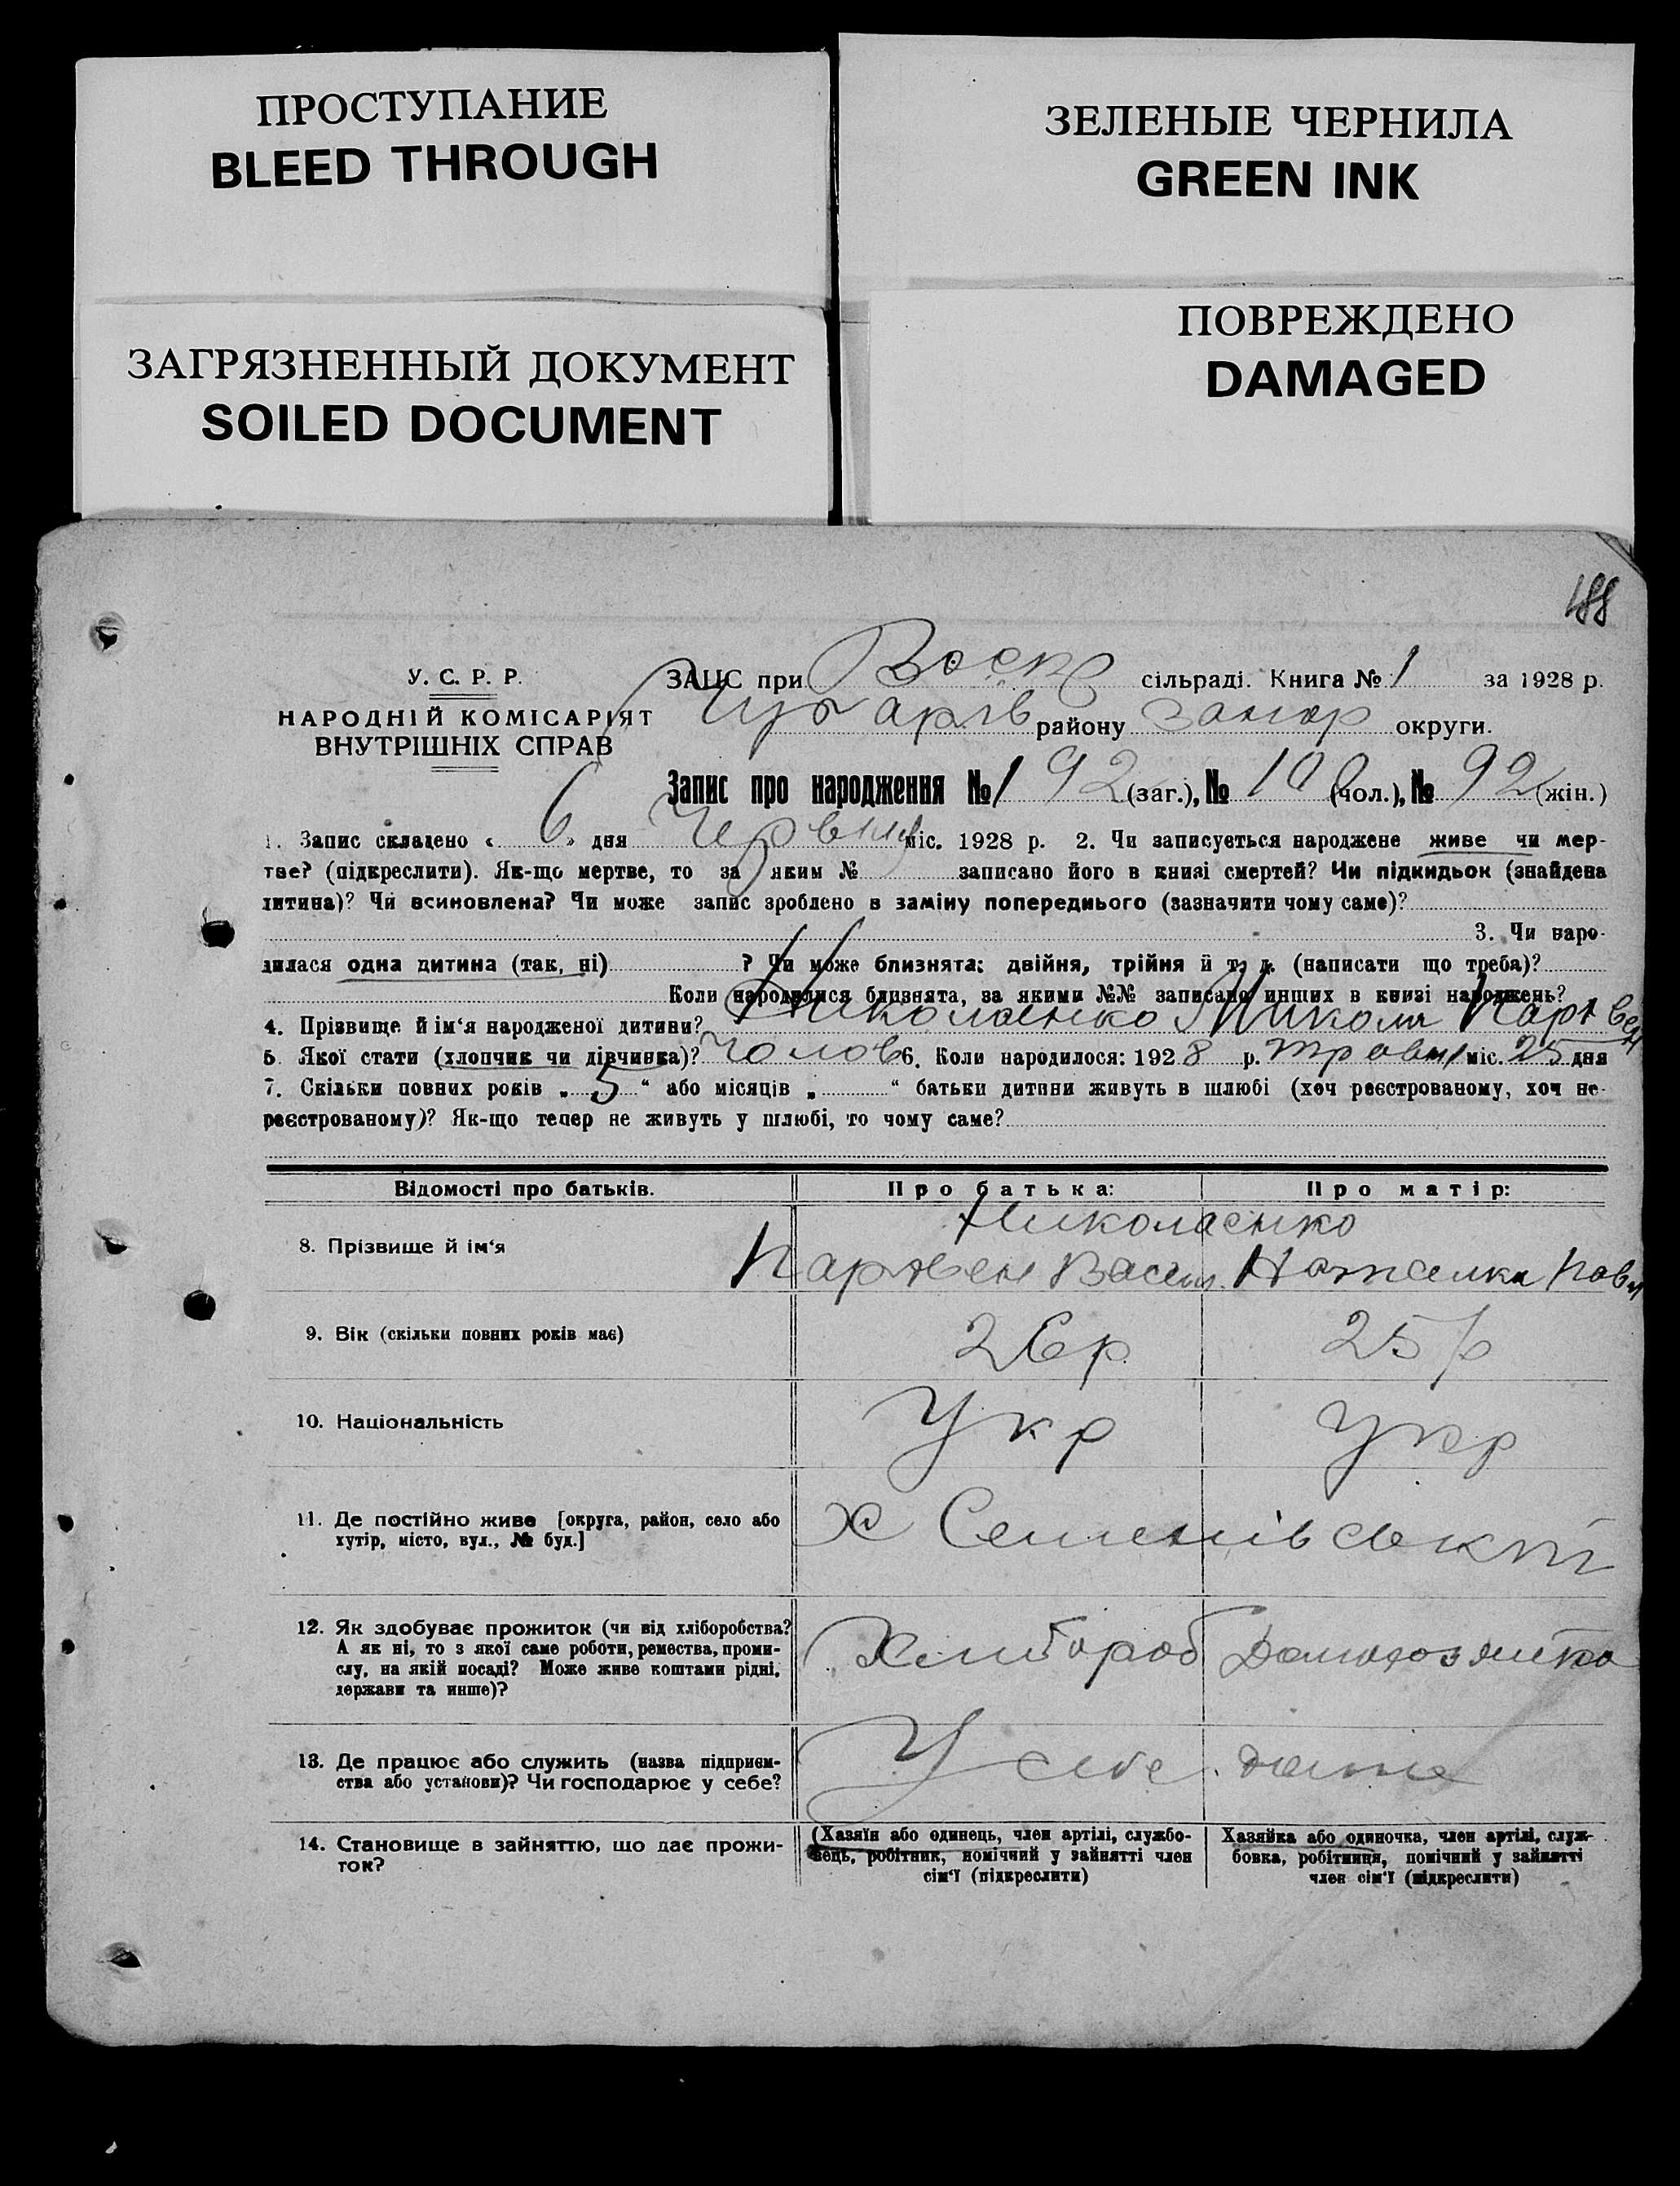 ПРОСТУПАНИЕ
BLEED THROUGH
ЗЕЛЕНЫЕ ЧЕРНИЛА
GREEN INK
ЗАГРЯЗНЕННЫЙ ДОКУМЕНТ
SOILED DOCUMENT
ПОВРЕЖДЕНО
DAMAGED
188
У. С. Р. Р.
НАРОДНІЙ КОМІСАРІЯТ
ВНУТРІШНІХ СПРАВ
ЗАЦС при Воскр сільраді. Книга № 1 за 1928 р.
Чубарів району Запор округи.
Запис про народження № 192 (заг.), № 100 (чол.), № 92 (жін.)
1. Запис складено « 6 » дня Червня міс. 1928 р. 2. Чи записується народжене живе чи мер-
тве? (підкреслити). Як-що мертве, то за яким № записано його в книзі смертей? Чи підкидьок (знайдена
дитина)? Чи всиновлена? Чи може запис зроблено в заміну попереднього (зазначити чому саме)?
3. Чи наро-
дилася одна дитина (так, ні) ? Чи може близнята: двійня, трійня й т. д. (написати що треба)?
Коли народилися близнята, за якими №№ записано инших в книзі народжень?
4. Прізвище й ім‘я народженої дитини? Николаенко Микола Парфен
5. Якої стати (хлопчик чи дівчинка)? Чолов 6. Коли народилося: 1928 р. травня міс. 25 дня
7. Скільки повних років „ 5 “ або місяців „ “ батьки дитини живуть в шлюбі (хоч реєстрованому, хоч не-
реєстрованому)? Як-що тепер не живуть у шлюбі, то чому саме?
Відомості про батьків. Про батька: Про матір:
Николаенко
8. Прізвище й ім‘я Парфен Васил. Павл
9. Вік (скільки повних років має) 26 р 25 р
10. Національність Укр Укр
11. Де постійно живе [округа, район, село або
хутір, місто, вул., № буд.]
х Семенівський
12. Як здобуває прожиток (чи від хліборобства?
А як ні, то з якої саме роботи, ремества, проми-
слу, на якій посаді? Може живе коштами рідні,
держави та инше)?
Хлибороб Домогозяйка
13. Де працює або служить (назва підприєм-
ства або установи)? Чи господарює у себе?
У себе дома
14. Становище в зайняттю, що дає прожи-
ток?
(Хазяїн або одинець, член артілі, службо-
вець, робітник, помічний у зайнятті член
сім‘ї (підкреслити)
Хазяйка або одиночка, член артілі, служ-
бовка, робітниця, помічний у зайнятті
член сім‘ї (підкреслити)